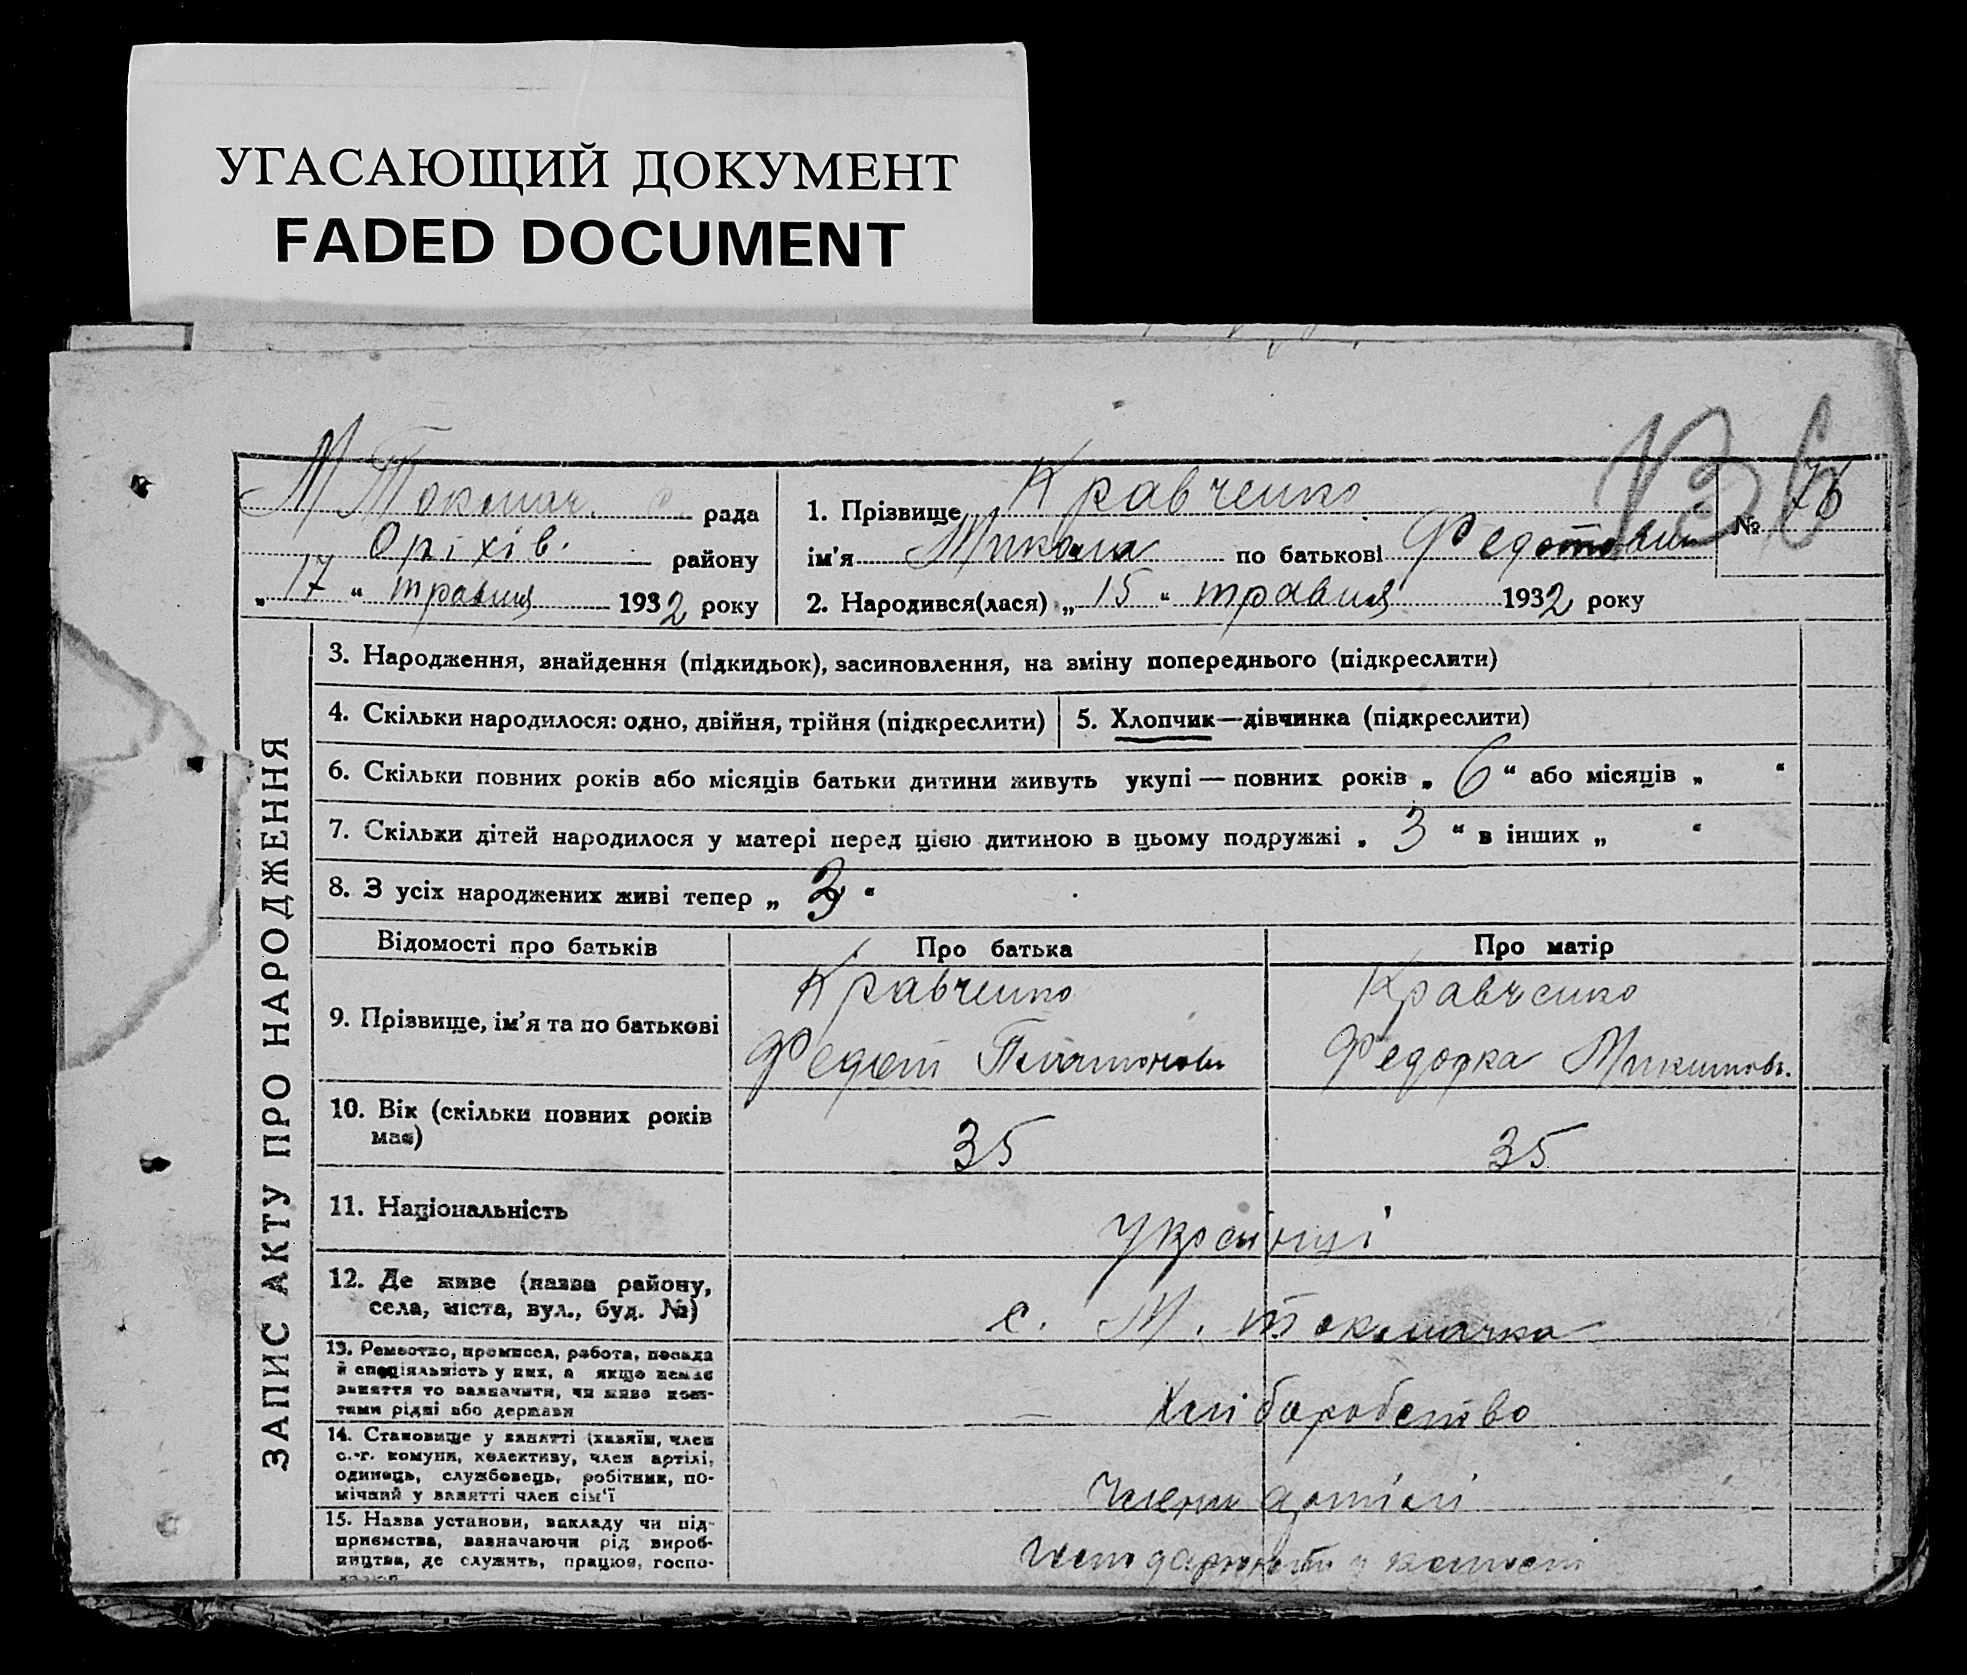 УГАСАЮЩИЙ ДОКУМЕНТ
FADED DOCUMENT
М Токмач. с. рада
Оріхів. району
„ 17 “ травня 1932 року
1. Прізвище Кравченко
ім'я Микола по батькові Федотович
2. Народився(лася) „ 15 “ травня 1932 року
№ 76
ЗАПИС АКТУ ПРО НАРОДЖЕННЯ
3. Народження, знайдення (підкидьок), засиновлення, на зміну попереднього (підкреслити)
4. Скільки народилося: одно, двійня, трійня (підкреслити)
5. Хлопчик—дівчинка (підкреслити)
6. Скільки повних років або місяців батьки дитини живуть укупі — повних років „ 6 “ або місяців „ “
7. Скільки дітей народилося у матері перед цією дитиною в цьому подружжі „ 3 “ в інших „ “
8. З усіх народжених живі тепер „ 3 “
Відомості про батьків Про батька Про матір
9. Прізвище, ім'я та по батькові
Кравченко
Федот Платонов
Кравченко
Федорка Микитовн.
10. Вік (скільки повних років
має)
35 35
11. Національність
Українці
12. Де живе (назва району,
села, міста, вул., буд. №)
с. М. Токмачка
13. Ремество, промисел, робота, посада
й спеціяльність у них, а якщо немає
заняття то зазначити, чи живе кош-
тами рідні або держави
Хліборобство
14. Становище у занятті (хазяїн, член
с.-г. комуни, колективу, член артілі,
одинець, службовець, робітник, по-
мічний у занятті член сім'ї
Члени артілі
15. Назва установи, закладу чи під-
приємства, зазначаючи рід вироб-
ництва, де служить, працює, госпо-